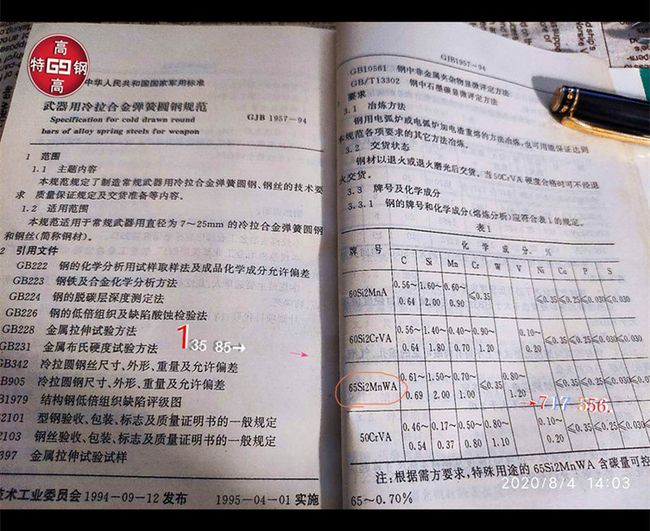 高
特 钢
高
中华人民共和国国家军用标准
武器用冷拉合金弹簧圆钢规范
Specification for cold drawn round
bars of alloy spring steels for weapon
GJB 1957—94
1 范围
1.1 主题内容
本规范规定了制造常规武器用冷拉合金弹簧圆钢、钢丝的技术要
求 质量保证规定及交货准备等内容。
1.2 适用范围
本规范适用于常规武器用直径为 7~25mm 的冷拉合金弹簧圆钢
和钢丝(简称钢材)。
2 引用文件
GB222 钢的化学分析用试样取样法及成品化学成分允许偏差
GB223 钢铁及合金化学分析方法
GB224 钢的脱碳层深度测定法
GB226 钢的低倍组织及缺陷酸蚀检验法
GB228 金属拉伸试验方法
GB231 金属布氏硬度试验方法
GB342 冷拉圆钢丝尺寸、外形、重量及允许偏差
GB905 冷拉圆钢尺寸、外形、重量及允许偏差
B1979 结构钢低倍组织缺陷评级图
2101 型钢验收、包装、标志及质量证明书的一般规定
2103 钢丝验收、包装、标志及质量证明书的一般规定
397 金属拉伸试验试样
技术工业委员会 1994-09-12 发布 1995-04-01 实施
135 85→
GJB1957—94
GB10561 钢中非金属夹杂物显微评定方法
GB/T13302 钢中石墨碳显微评定方法
要求
3.1 冶炼方法
钢用电弧炉或电弧炉加电渣重熔的方法冶炼,也可用能保证达到
本规范各项要求的其它方法冶炼。
3.2 交货状态
钢材以退火或退火磨光后交货。当50CrVA硬度合格时可不经退
火交货。
3.3 牌号及化学成分
3.3.1 钢的牌号和化学成分(熔炼分析)应符合表1的规定。
表1
牌号 化学成分,%
C Si Mn Cr W V Ni Cu P S
60Si2MnA 0.56~0.64 1.60~2.00 0.60~0.90 ≤0.35 ≤0.35 ≤0.25 ≤0.030 ≤0.030
60Si2CrVA 0.56~0.64 1.40~1.80 0.40~0.70 0.90~1.20 0.10~0.20 ≤0.35 ≤0.25 ≤0.030 ≤0.030
65Si2MnWA 0.61~0.69 1.50~2.00 0.70~1.00 ≤0.35 0.80~1.20 ≤0.35 ≤0.25 ≤0.030 ≤0.030
→717 556.
50CrVA 0.46~0.54 0.17~0.37 0.50~0.80 0.80~1.10 0.10~0.20 ≤0.35 ≤0.25 ≤0.030 ≤0.030
注:根据需方要求,特殊用途的 65Si2MnWA 含碳量可控
65~0.70%
2020/8/4 14:03